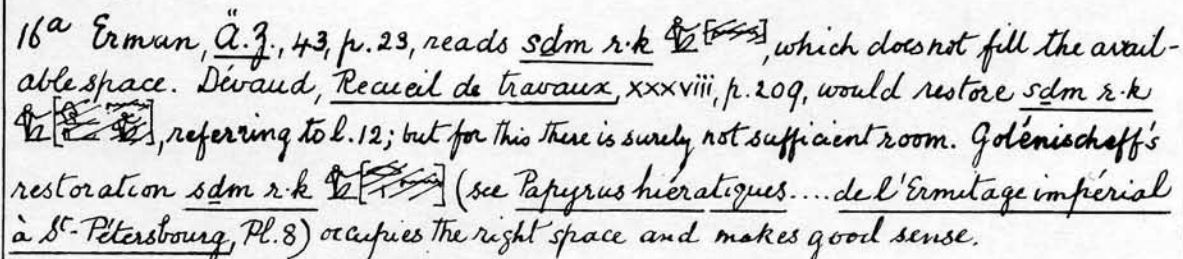 16a Erman, Ä.Z., 43, p. 23, reads sdm r·k [ ], which does not fill the avail-
able space. Dévaud, Recueil de travaux, xxxviii, p. 209, would restore sdm r·k
[ ], referring to l. 12; but for this there is surely not sufficient room. Golénischeff's
restoration sdm r·k [ ] (see Papyrus hiératiques .... de l'Ermitage impérial
à St-Pétersbourg, Pl. 8) occupies the right space and makes good sense.